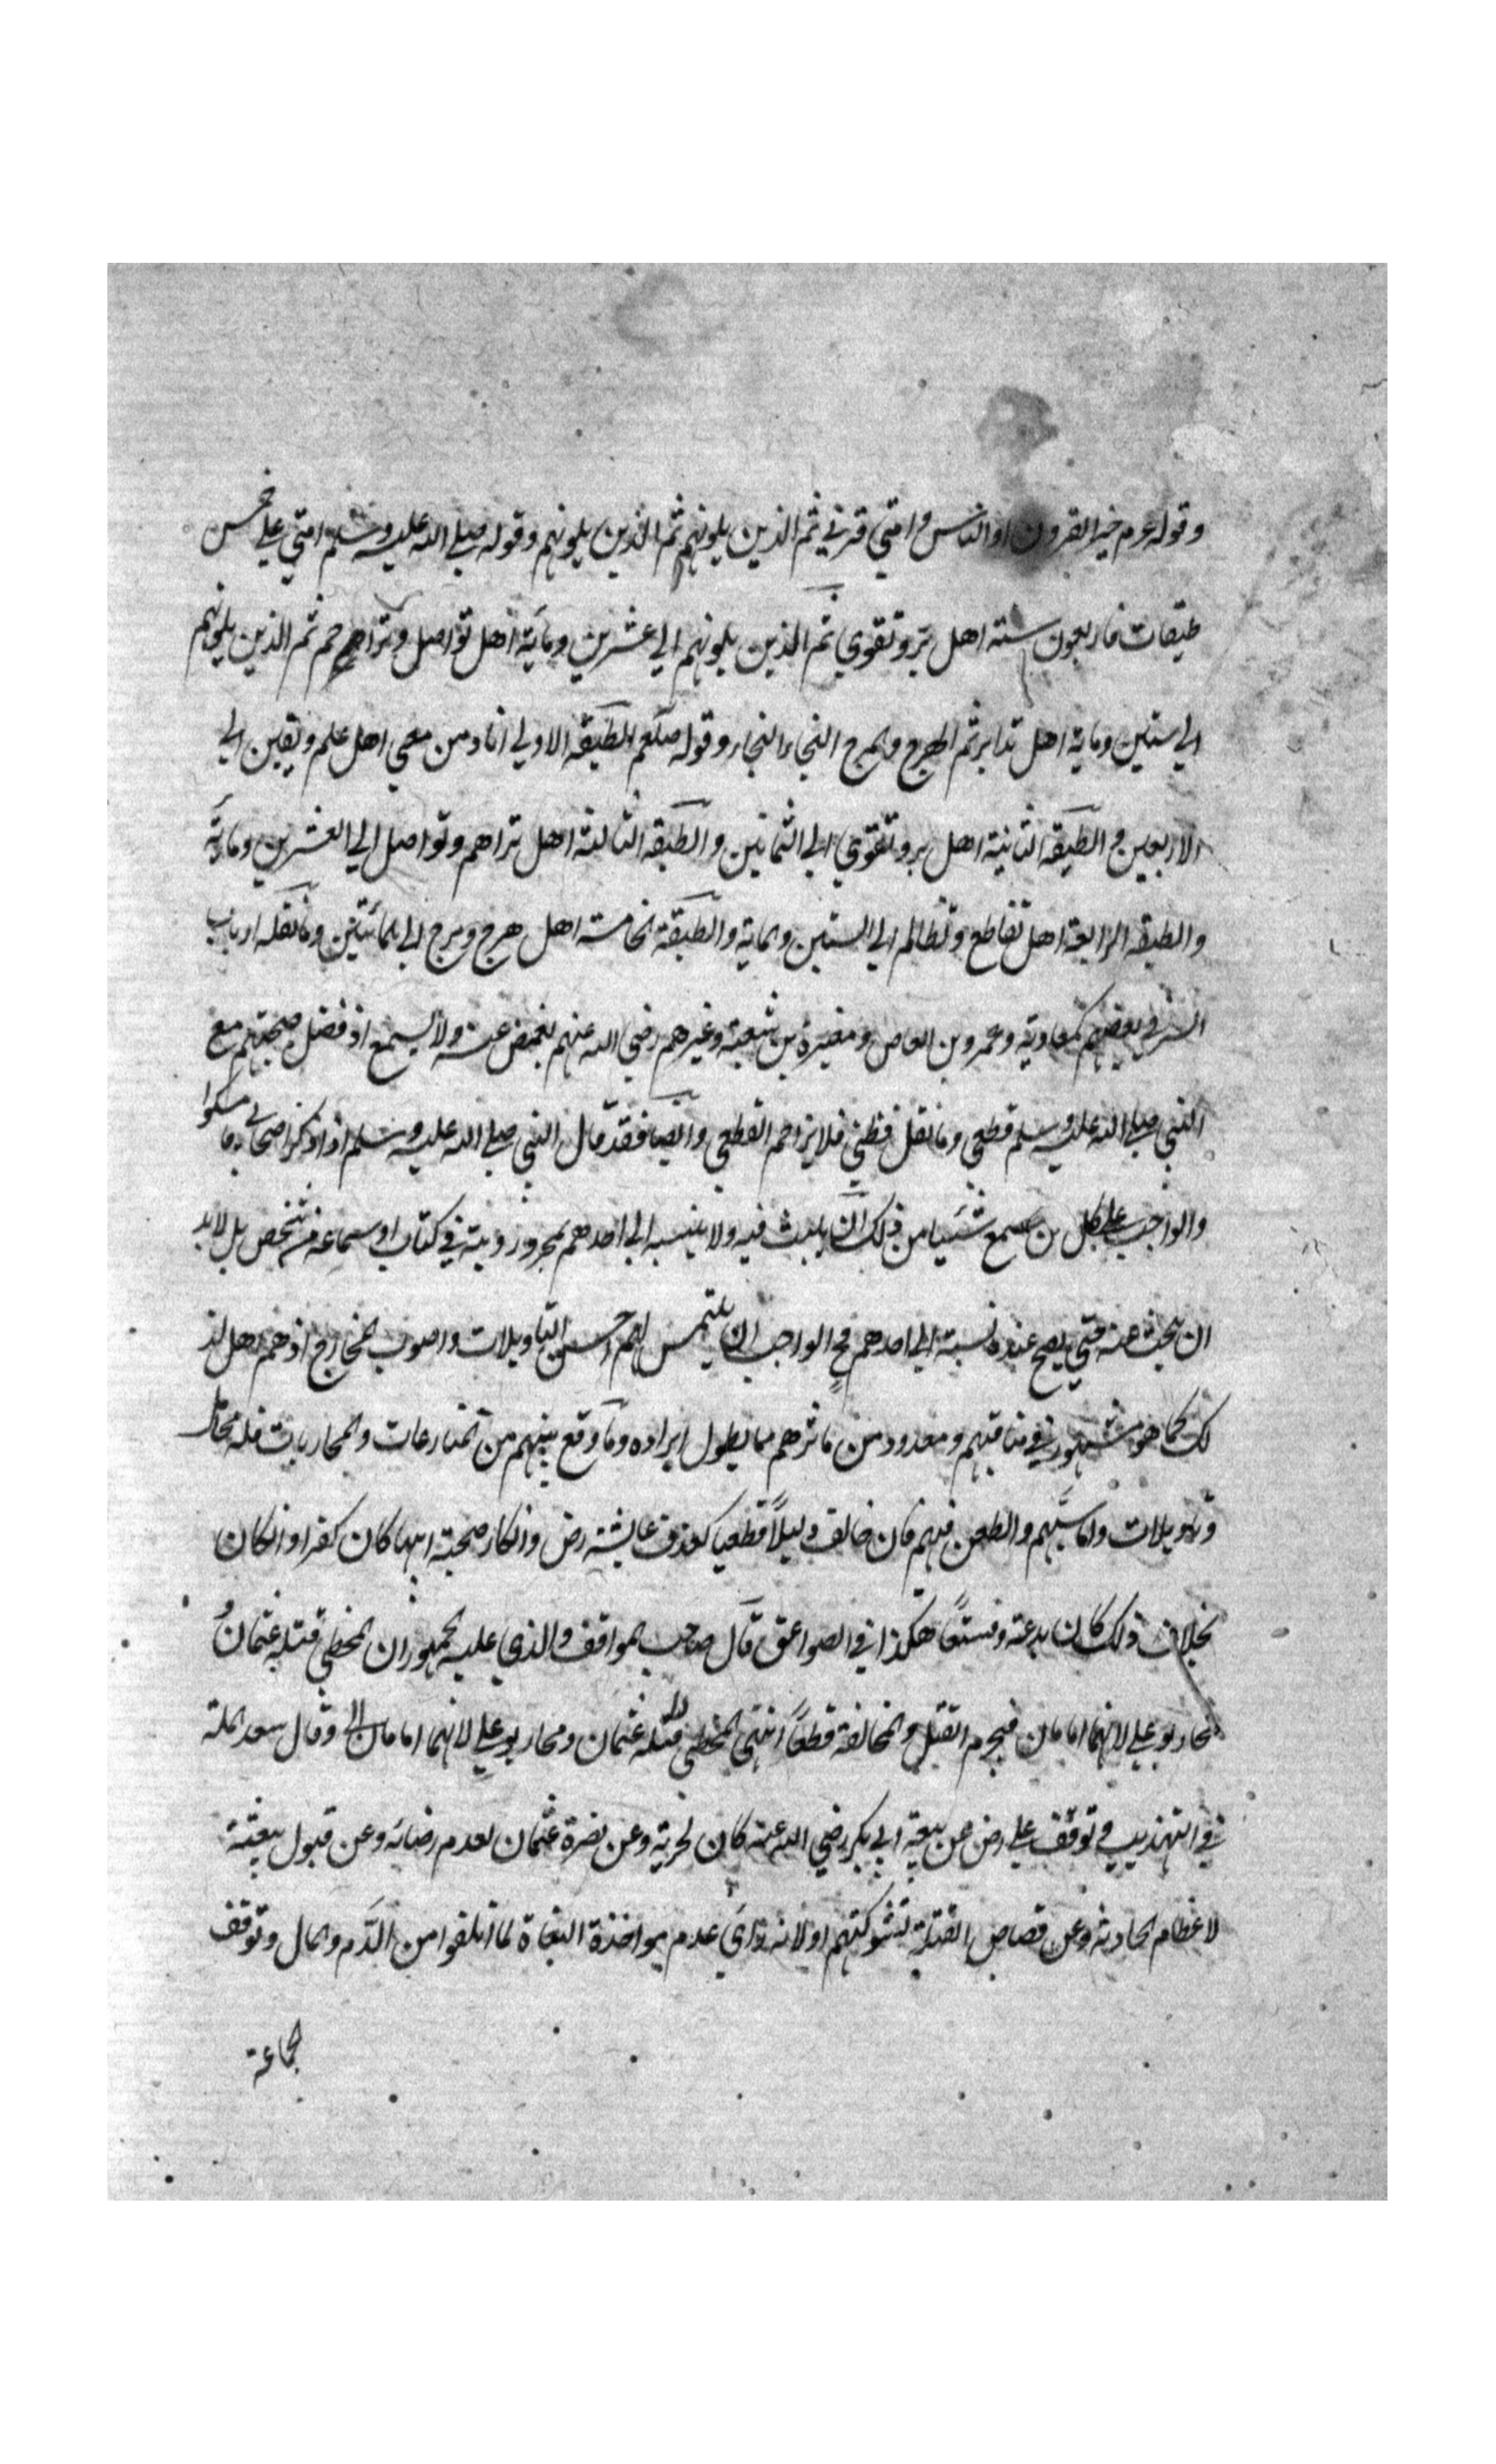 وقوله عم خير القرون او الناس او امتي قرني ثم الذين يلونهم ثم الذين يلونهم وقوله صلي الله عليه وسلم امتي علي خمس
طبقات فاربعون سنة اهل بر وتقوي ثم الذين يلونهم الي عشرين وماية اهل تواصل وتراحم ثم الذين يلونهم
الي ستين وماية اهل تدابر ثم الهرج والمرج النجا النجا وقوله صلعم الطبقة الاولي انا ومن معي اهل علم ويقين الي
الاربعين والطبقة الثانية اهل بر وتقوي الي الثمانين والطبقة الثالثة اهل تراحم وتواصل الي العشرين وماية
والطبقة الرابعة اهل تقاطع وتظالم الي الستين والماية والطبقة الخامسة اهل هرج ومرج الي المائتين وما نقله ارباب
السير في بعضهم كمعاوية وعمرو بن العاص ومغيرة بن شعبة وغيرهم رضي الله عنهم يغمض عنه ولا يسمع اذ فضل صحبتهم مع
النبي صلي الله عليه وسلم قطعي وما نقل فظني فلا يزاحم القطعي وايضا فقد قال النبي صلي الله عليه وسلم اذا ذكر اصحابي فامسكوا
والواجب علي كل من سمع شيئا من ذلك ان يثبت فيه ولا ينسبه الي احدهم بمجرد رؤيته في كتاب او سماعه من شخص بل لا بد
ان يبحث عنه حتي يصح عنده نسبته الي احدهم فح الواجب ان يلتمس لهم احسن التاويلات واصوب المخارج اذ هم اهل لذ
لك كما هو مشهور في مناقبهم ومعدود من مآثرهم مما يطول ايراده وما وقع بينهم من المنازعات والمحاربات فله محال
وتاويلات واما سبهم والطعن فيهم فان خالف دليلاً قطعيا كقذف عايشة رض وانكار صحبة ابيها كان كفرا وانكان
بخلاف ذلك كان بدعة وفسقاً هكذا في الصواعق قال صاحب المواقف والذي عليه الجمهور ان المخطي قتلة عثمان و
محاربو علي لانهما امامان فيحرم القتل والمخالفة قطعاً انتهي المخطي قتلة عثمان ومحاربو علي لانهما امامان الي وقال سعد الملة
في التهذيب في توقف علي رض عن بيعة ابي بكر رضي الله عنه كان لحزنه وعن نصرة عثمان لعدم رضائه وعن قبول بيعته
لاعظام الحادثة وعن قصاص القتلة لشوكتهم او لانه رأي عدم مواخذة البغاة لما اتلفوا من الدم والمال وتوقف
الجماعة